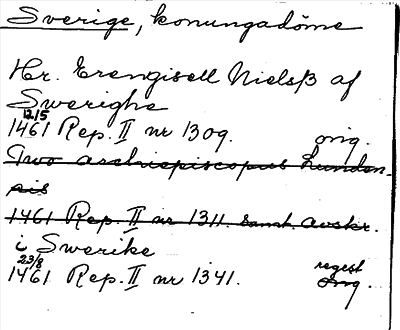 Sverige, konungadöme
Hr. Erengisell Nielsß af
Swerighe
12/5
1461 Rep. II nr 1309. orig.
Two archiepiscopus Lunden-
sis
1461 Rep. II nr 1311. samt. avskr.
i Swerike
23/8 regest
1461 Rep. II nr 1341. orig.